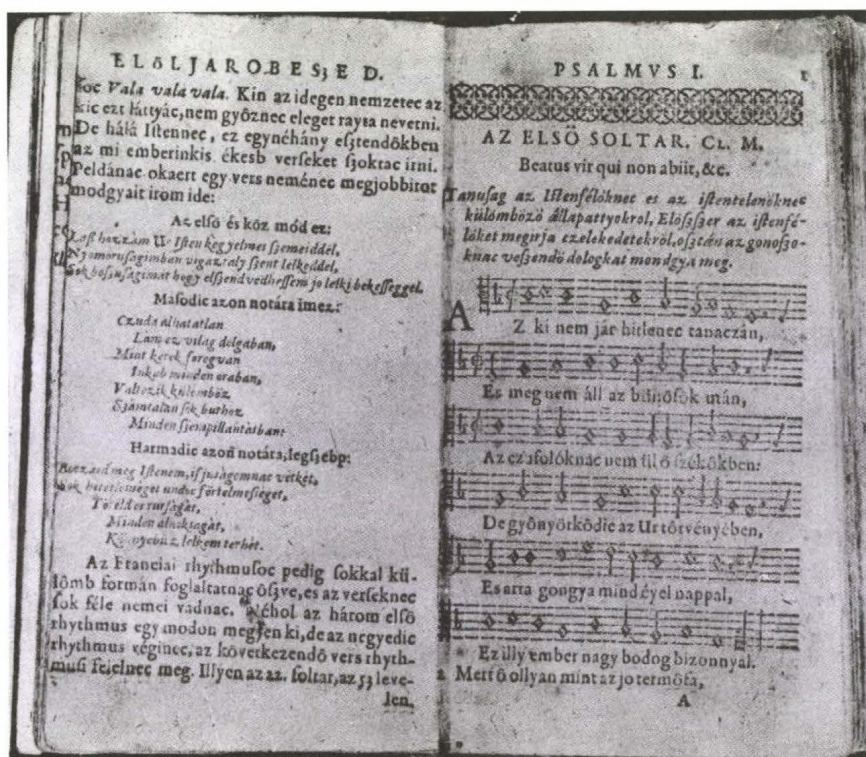 ELÖLJAROBESZED.
ſoc Vala vala vala. Kin az idegen nemzetec az
kic ezt láttyác, nem gyôznec eleget rayta nevetni.
De hálá Iſtennec, ez egynéhány eſztendôkben
az mi emberinkis ékesb verſeket ſzoktac irni.
Peldánac okaert egy vers neménec megjobbitot
modgyait irom ide:
Az elſô és kôz môd ez:
hozzám Ur Iſten kegyelmes ſzemeiddel,
Nyomoruſagimban vigaztaly ſzent lelkeddel,
Sok boſzuſagimat hogy elſzendvedheſſem jo lelki bekeſſeggel.
Maſodic azon notára imez:
Czuda alhatatlan
Lám ez világ dolgaban,
Mint kerek foregvan
Inkab minden oraban,
Valtozik külömböz
Szamtalan ſok buthoz
Minden ſzempillantatban:
Harmadic azon notára, legſzebp:
meg Iſtenem, ifjuſágomnac vétkét,
ſok undoc förtelmeſſeget,
rutſágát,
Minden álnokſagát,
lelkem terhét.
Az Franciai rhythmuſoc pedig ſokkal kü-
lômb formán foglaltatnac ôſzve, es az verſeknec
ſok féle nemei vadnac. Néhol az három elſô
rhythmus egy modon megyen ki, de az negyedic
rhythmus véginec, az kôvetkezendô vers rhyth-
muſi felelnec meg. Illyen az 22. ſoltar, az 53 leve-
len.
PSALMVS I. 1
AZ ELSÖ SOLTAR. CL. M.
Beatus vir qui non abiit, &c.
Tanuſag az Iſtenfélöknec es az iſtentelenöknec
külömbözö állapattyokrol, Elöſzſzer az iſtenfé-
löket megirja czelekedetekröl, oſztán az gonoſzo-
knac veſzendö dolgokat mondgya meg.
AZ ki nem jár hitlenec tanaczán,
Es meg nem áll az bünôſôkután,
Az czufolóknac nem ûl ô ſzékôkben:
De gyônyôrkôdic az Ur tôrvényében,
Es arra gongya mind éyel nappal,
Ez illy ember nagy bodog bizonnyal.
2 Mert ô ollyan mint az jo termôfa,
A